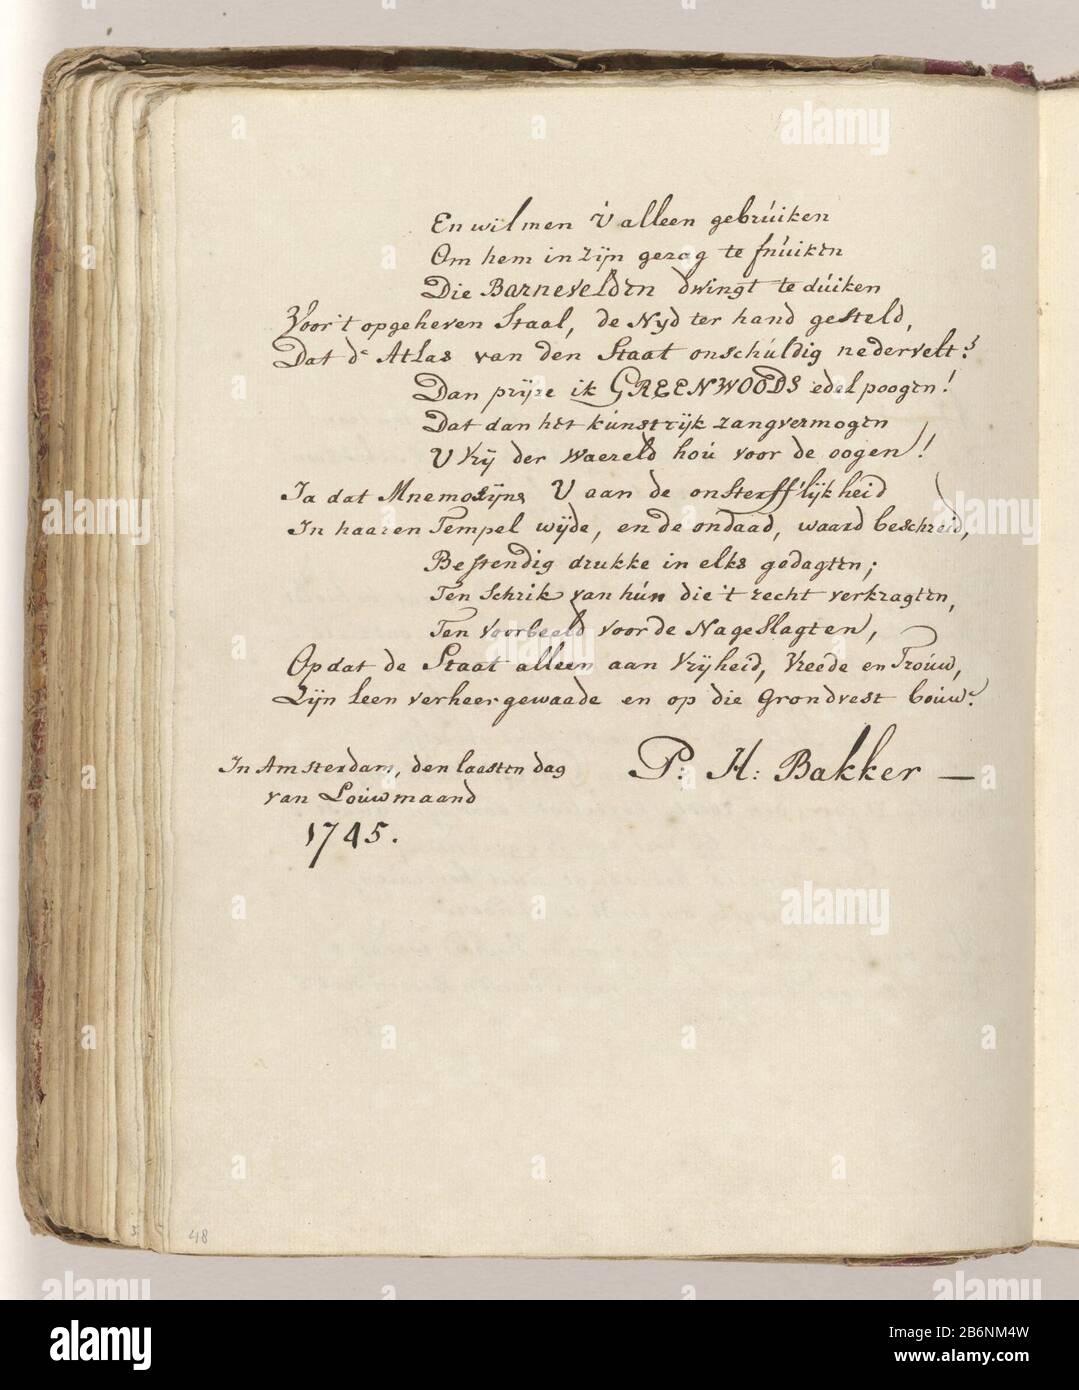 En wïl men Ú alleen gebrúiken
Om hem in zijn gezag te fnúiken
Die Barnevelden dwingt te dúiken
Voor 't opgeheven Staal, de Nyd ter hand gesteld,
Dat de Atlas van den Staat onschúldig nedervelt?
Dan prijze ik GREENWOODS edel poogen!
Dat dan hèt kúnstrijk zangvermogen
U Vrij der Waereld hoú voor de oogen!
Ja dat Mnemozijne U aan de onsterff'lijkheid
In haaren Tempel wijde, en de ondaad, waard beschreid,
Bestendig drukke in elks gedagten;
Ten Schrik van hún die 't recht verkragten,
Ten Voorbeeld voor de Nageslagten,
Opdat de Staat alleen aan Vrijheid, Vreede en Troúw,
Zijn leen verheergewaade en op die Grondvest boúw.
In Amsterdam, den laasten dag
van Loúwmaand
1745.
P: H: Bakker —
48
alamy
Image ID: 2B6NM4W
www.alamy.com